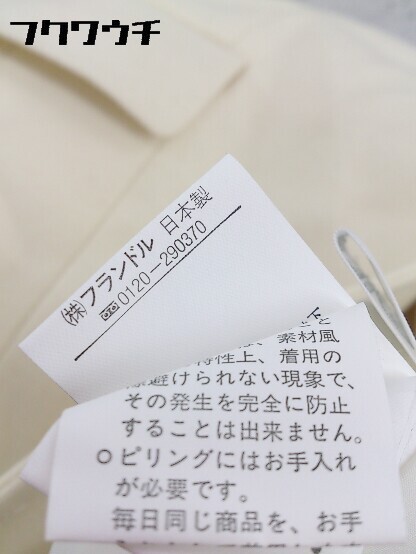 フクワウチ
(株)フランドル 日本製
0120-290370
素材風
特性上、着用の
避けられない現象で、
その発生を完全に防止
することは出来ません。
○ピリングにはお手入れ
が必要です。
毎日同じ商品を、お手